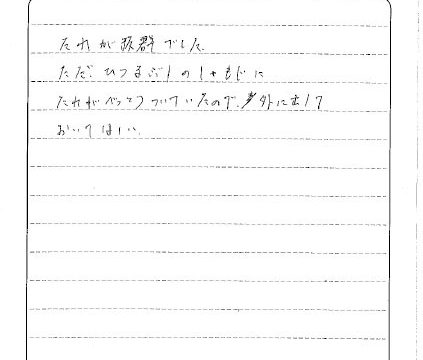 たれが抜群でした.
ただ、ひつまぶしのしゃもじに
たれがべっとりついていたので、外に出して
おいてほしい.